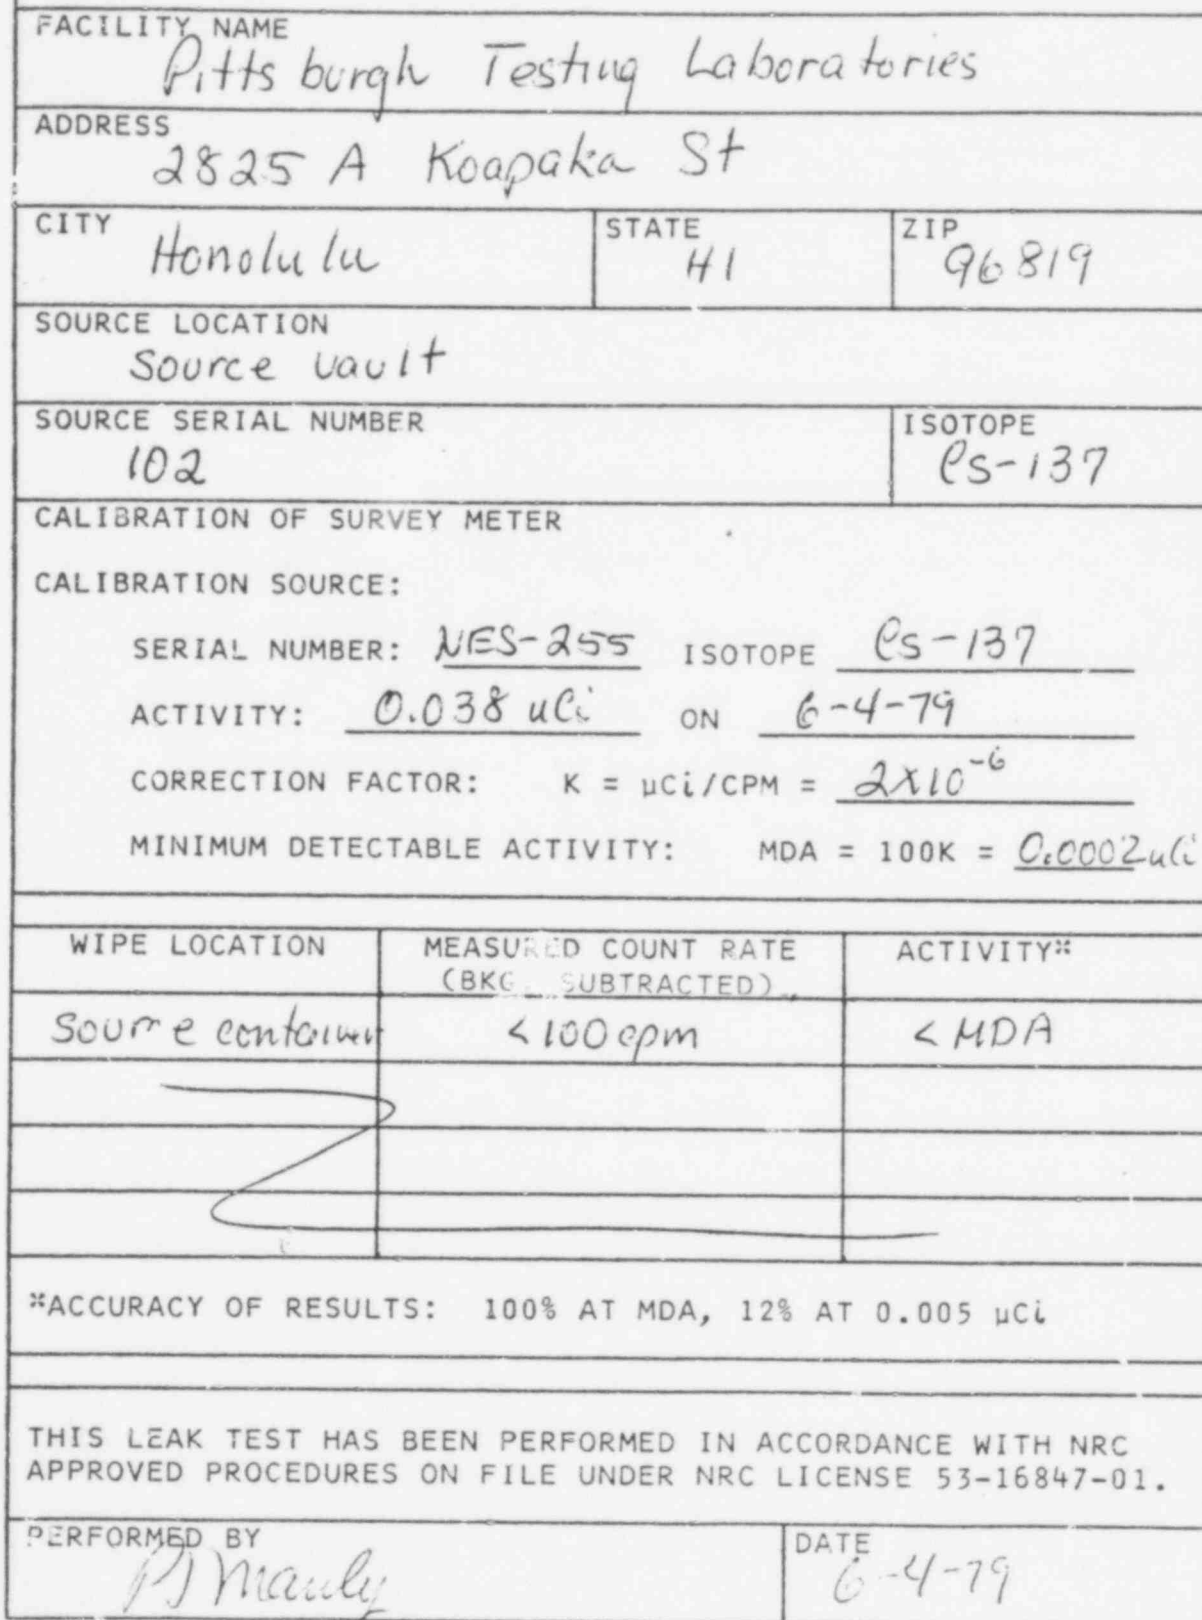 FACILITY NAME
Pittsburgh Testing Laboratories
ADDRESS
2825 A Koapaka St
CITY STATE ZIP
Honolulu HI 96819
SOURCE LOCATION
Source vault
SOURCE SERIAL NUMBER ISOTOPE
102 Cs-137
CALIBRATION OF SURVEY METER
CALIBRATION SOURCE:
SERIAL NUMBER: NES-255 ISOTOPE Cs-137
ACTIVITY: 0.038 uCi ON 6-4-79
CORRECTION FACTOR: K = µCi/CPM = 2X10⁻⁶
MINIMUM DETECTABLE ACTIVITY: MDA = 100K = 0.0002uCi
WIPE LOCATION MEASURED COUNT RATE ACTIVITY*
(BKG. SUBTRACTED)
Source container <100 cpm <MDA
*ACCURACY OF RESULTS: 100% AT MDA, 12% AT 0.005 µCi
THIS LEAK TEST HAS BEEN PERFORMED IN ACCORDANCE WITH NRC
APPROVED PROCEDURES ON FILE UNDER NRC LICENSE 53-16847-01.
PERFORMED BY DATE
PJ Manly 6-4-79